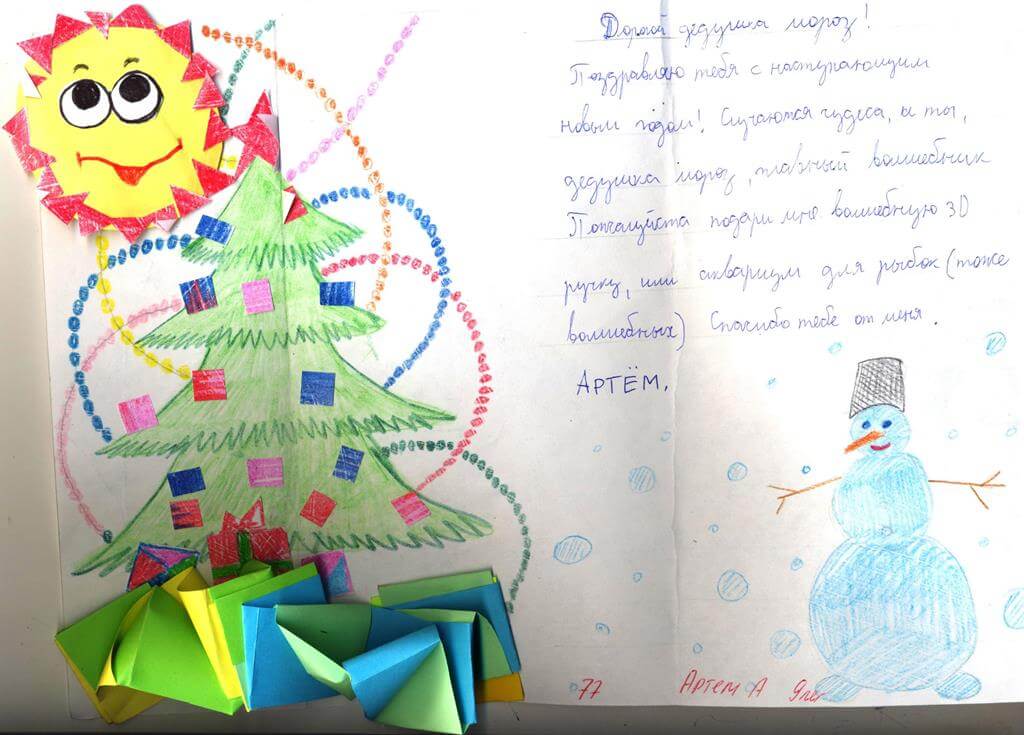 Дорогой дедушка мороз!
Поздравляю тебя с наступающим
новым годом! Случаются чудеса, и ты,
дедушка мороз, главный волшебник
Пожалуйста подари мне волшебную 3D
ручку, или аквариум для рыбок (тоже
волшебных) Спасибо тебе от меня.
АРТЁМ.
77 Артем А 9 лет